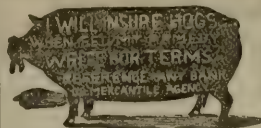 I WILL INSURE HOGS
WHEN
WRITE FOR TERMS
REFERENCE ANY BANK
OR MERCANTILE AGENCY